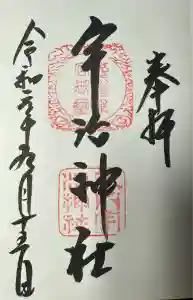 奉拝
宇治神社
令和六年九月十五日